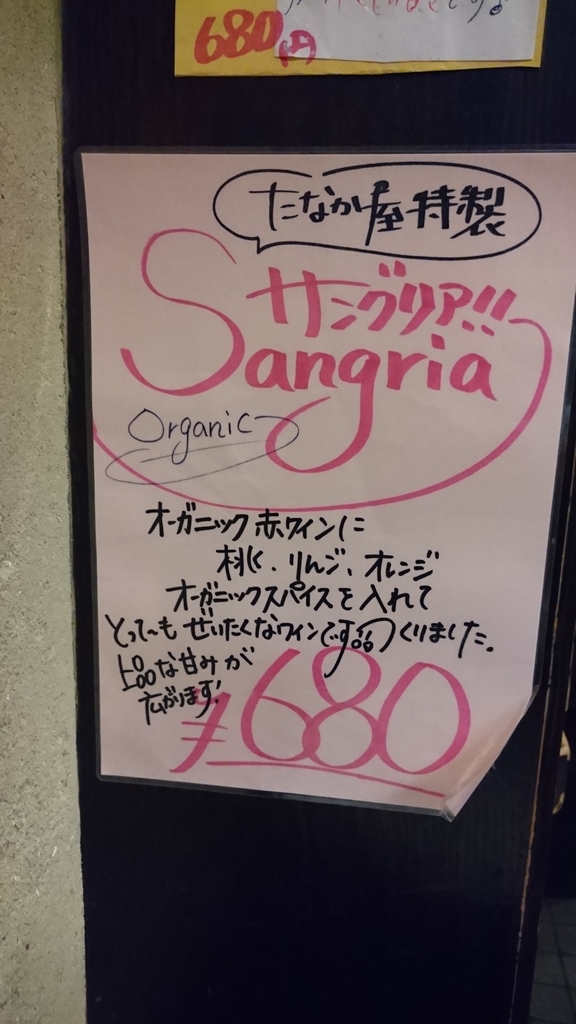 680円
たなか屋特製
サングリア!!
Sangria
Organic
オーガニック赤ワインに
桃、りんご、オレンジ
オーガニックスパイスを入れて
とって〜もぜいたくなワインです つくりました。
上品な甘みが
広がります!
¥680